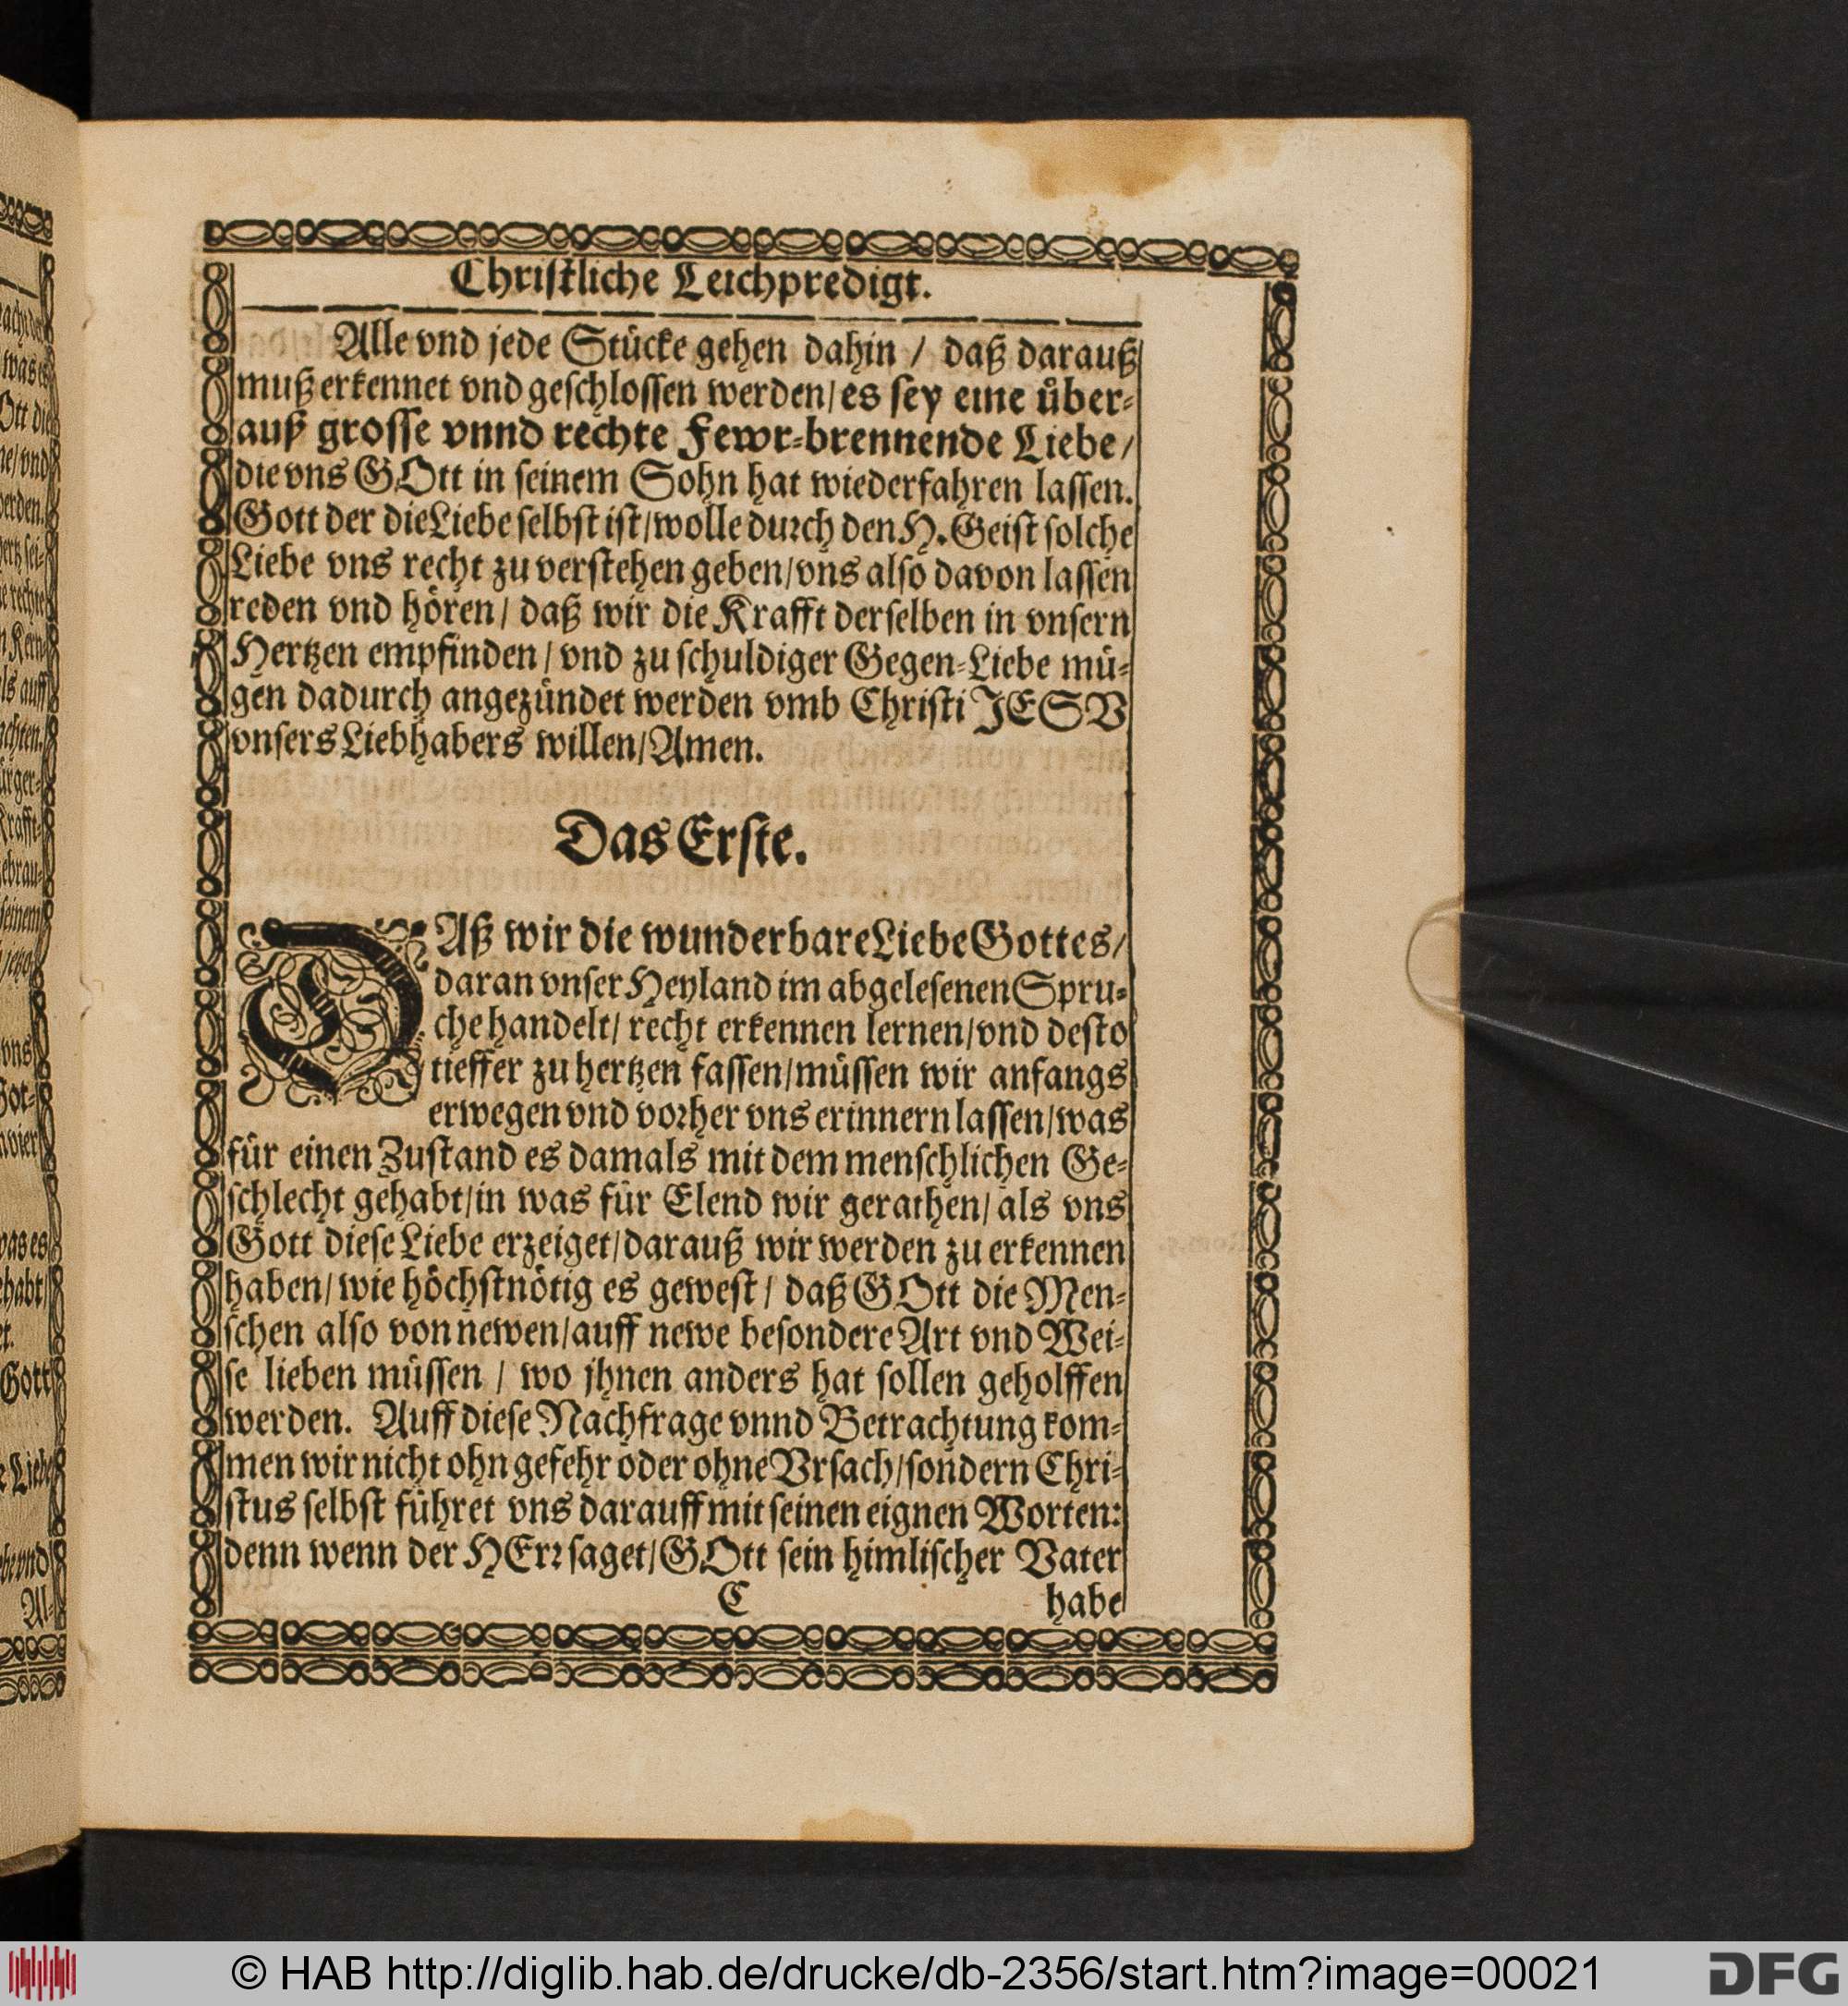 Christliche Leichpredigt.
Alle vnd jede Stücke gehen dahin / daß darauß
muß erkennet vnd geschlossen werden / es sey eine über-
auß grosse vnnd rechte Fewr-brennende Liebe /
die vns GOtt in seinem Sohn hat wiederfahren lassen.
Gott der die Liebe selbst ist / wolle durch den H. Geist solche
Liebe vns recht zu verstehen geben / vns also davon lassen
reden vnd hören / daß wir die Krafft derselben in vnsern
Hertzen empfinden / vnd zu schuldiger Gegen-Liebe mü-
gen dadurch angezündet werden vmb Christi JESV
vnsers Liebhabers willen / Amen.
Das Erste.
DAß wir die wunderbare Liebe Gottes /
daran vnser Heyland im abgelesenen Spru-
che handelt / recht erkennen lernen / vnd desto
tieffer zu hertzen fassen / müssen wir anfangs
erwegen vnd vorher vns erinnern lassen / was
für einen Zustand es damals mit dem menschlichen Ge-
schlecht gehabt / in was für Elend wir gerathen / als vns
Gott diese Liebe erzeiget / darauß wir werden zu erkennen
haben / wie höchstnötig es gewest / daß GOtt die Men-
schen also von newen / auff newe besondere Art vnd Wei-
se lieben müssen / wo jhnen anders hat sollen geholffen
werden. Auff diese Nachfrage vnnd Betrachtung kom-
men wir nicht ohn gefehr oder ohne Vrsach / sondern Chri-
stus selbst führet vns darauff mit seinen eignen Worten:
denn wenn der HErr saget / GOtt sein himlischer Vater
C habe
© HAB http://diglib.hab.de/drucke/db-2356/start.htm?image=00021
DFG